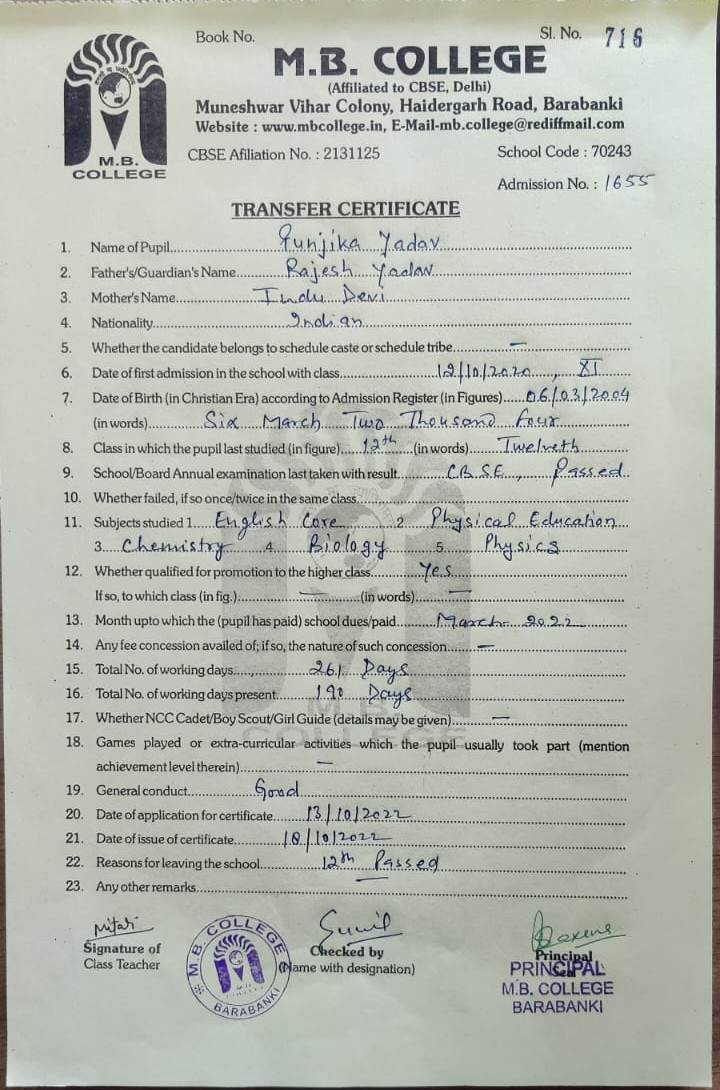 Book No.
Sl. No. 716
M.B. COLLEGE
(Affiliated to CBSE, Delhi)
Muneshwar Vihar Colony, Haidergarh Road, Barabanki
Website : www.mbcollege.in, E-Mail-mb.college@rediffmail.com
M.B.
COLLEGE
CBSE Afiliation No. : 2131125
School Code : 70243
Admission No. : 1655
TRANSFER CERTIFICATE
1. Name of Pupil Punjika Yadav
2. Father's/Guardian's Name Rajesh Yadav
3. Mother's Name Indu Devi
4. Nationality Indian
5. Whether the candidate belongs to schedule caste or schedule tribe —
6. Date of first admission in the school with class 12/10/2020, XI
7. Date of Birth (in Christian Era) according to Admission Register (in Figures) 06/03/2004
(in words) Six March Two Thousand Four
8. Class in which the pupil last studied (in figure) 12th (in words) Twelveth
9. School/Board Annual examination last taken with result CBSE, Passed
10. Whether failed, if so once/twice in the same class
11. Subjects studied 1. English Core 2 Physical Education
3. Chemistry 4. Biology 5. Physics
12. Whether qualified for promotion to the higher class Yes
If so, to which class (in fig.) — (in words) —
13. Month upto which the (pupil has paid) school dues/paid March 2022
14. Any fee concession availed of; if so, the nature of such concession —
15. Total No. of working days 261 Days
16. Total No. of working days present 190 Days
17. Whether NCC Cadet/Boy Scout/Girl Guide (details may be given) —
18. Games played or extra-curricular activities which the pupil usually took part (mention
achievement level therein) —
19. General conduct Good
20. Date of application for certificate 13/10/2022
21. Date of issue of certificate 18/10/2022
22. Reasons for leaving the school 12th Passed
23. Any other remarks —
Signature of
Class Teacher
M.B. COLLEGE
BARABANKI
Sunil
Checked by
(Name with designation)
Principal
Seal
PRINCIPAL
M.B. COLLEGE
BARABANKI